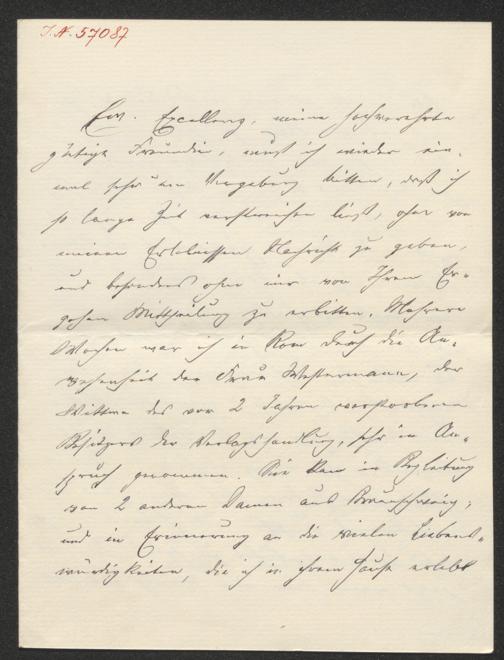 I.N. 57087
Ew. Excellenz, meine hochverehrte
gütige Freundin, muß ich wieder ein-
mal sehr um Vergebung bitten, daß ich
so lange Zeit verstreichen ließ, ohne von
meinen Erlebnissen Nachricht zu geben,
und besonders ohne mir von Ihrem Er-
gehen Mittheilung zu erbitten. Mehrere
Wochen war ich in Rom durch die An-
wesenheit der Frau Westermann, der
Wittwe des vor 2 Jahren verstorbenen
Besitzers der Verlagshandlung, sehr in An-
spruch genommen. Sie kam in Begleitung
von 2 anderen Damen aus Braunschweig;
und in Erinnerung an die vielen Liebens-
würdigkeiten, die ich in ihrem Hause erlebt